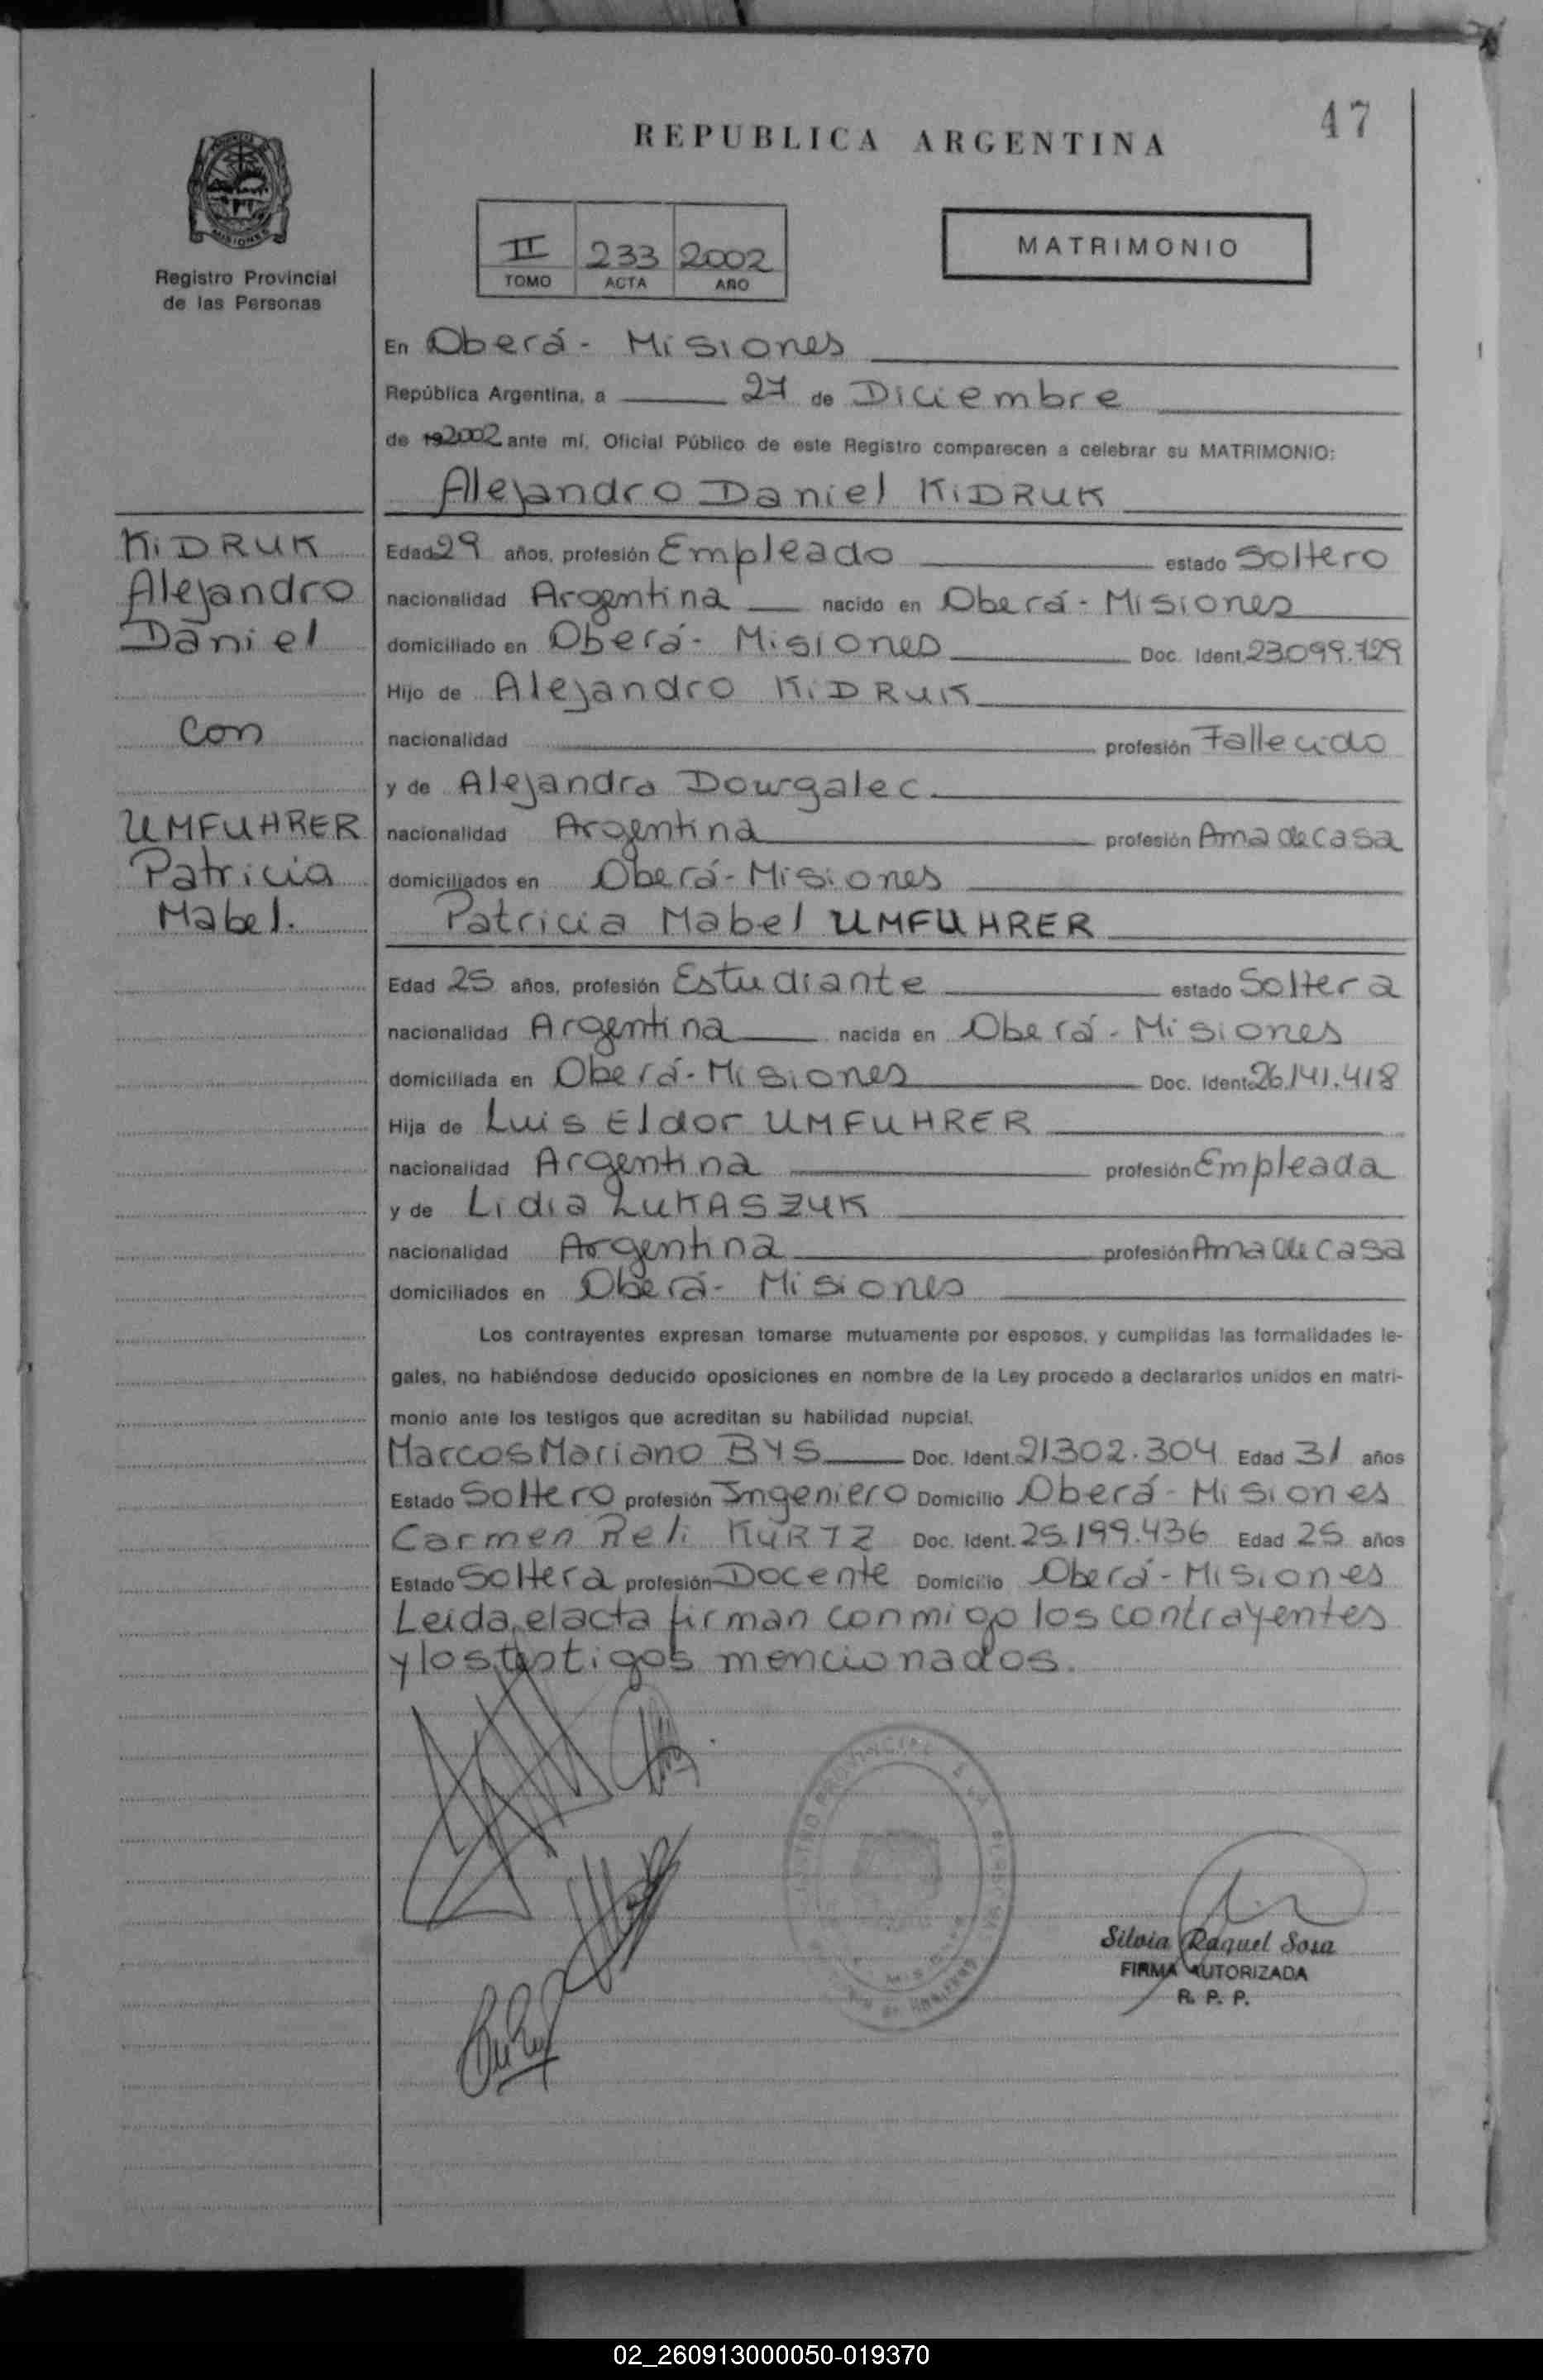 47
REPUBLICA ARGENTINA
MISIONES
Registro Provincial
de las Personas
II 233 2002
TOMO ACTA AÑO
MATRIMONIO
En Oberá - Misiones
República Argentina, a 27 de Diciembre
de 192002 ante mí, Oficial Público de este Registro comparecen a celebrar su MATRIMONIO:
Alejandro Daniel KiDRUK
KiDRUK
Alejandro
Daniel
Con
UMFUHRER
Patricia
Mabel.
Edad 29 años, profesión Empleado estado Soltero
nacionalidad Argentina nacido en Oberá - Misiones
domiciliado en Oberá - Misiones Doc. Ident. 23.099.729
Hijo de Alejandro KiDRUK
nacionalidad profesión Fallecido
y de Alejandra Dowgalec
nacionalidad Argentina profesión Ama de casa
domiciliados en Oberá - Misiones
Patricia Mabel UMFUHRER
Edad 25 años, profesión Estudiante estado Soltera
nacionalidad Argentina nacida en Oberá - Misiones
domiciliada en Oberá - Misiones Doc. Ident. 26.141.418
Hija de Luis Eldor UMFUHRER
nacionalidad Argentina profesión Empleada
y de Lidia LUKASZUK
nacionalidad Argentina profesión Ama de casa
domiciliados en Oberá - Misiones
Los contrayentes expresan tomarse mutuamente por esposos, y cumplidas las formalidades le-
gales, no habiéndose deducido oposiciones en nombre de la Ley procedo a declararlos unidos en matri-
monio ante los testigos que acreditan su habilidad nupcial.
Marcos Mariano BYS Doc. Ident. 21.302.304 Edad 31 años
Estado Soltero profesión Ingeniero Domicilio Oberá - Misiones
Carmen Reli KURTZ Doc. Ident. 25.199.436 Edad 25 años
Estado Soltera profesión Docente Domicilio Oberá - Misiones
Leida, el acta firman conmigo los contrayentes
y los testigos mencionados.
Silvia Raquel Sosa
FIRMA AUTORIZADA
R. P. P.
02_260913000050-019370